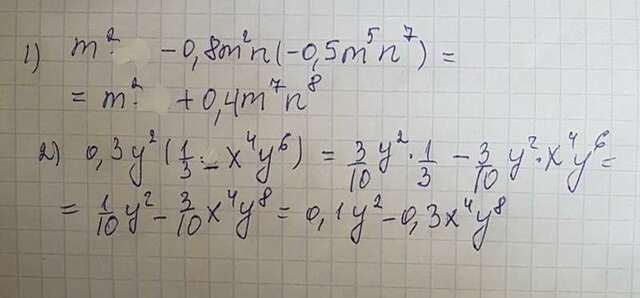 1) m² · -0,8m²n(-0,5m⁵n⁷) =
= m² · +0,4m⁷n⁸
2) 0,3y²(1/3 · - x⁴y⁶) = 3/10 y² · 1/3 - 3/10 y² · x⁴y⁶ =
= 1/10 y² - 3/10 x⁴y⁸ = 0,1y² - 0,3x⁴y⁸